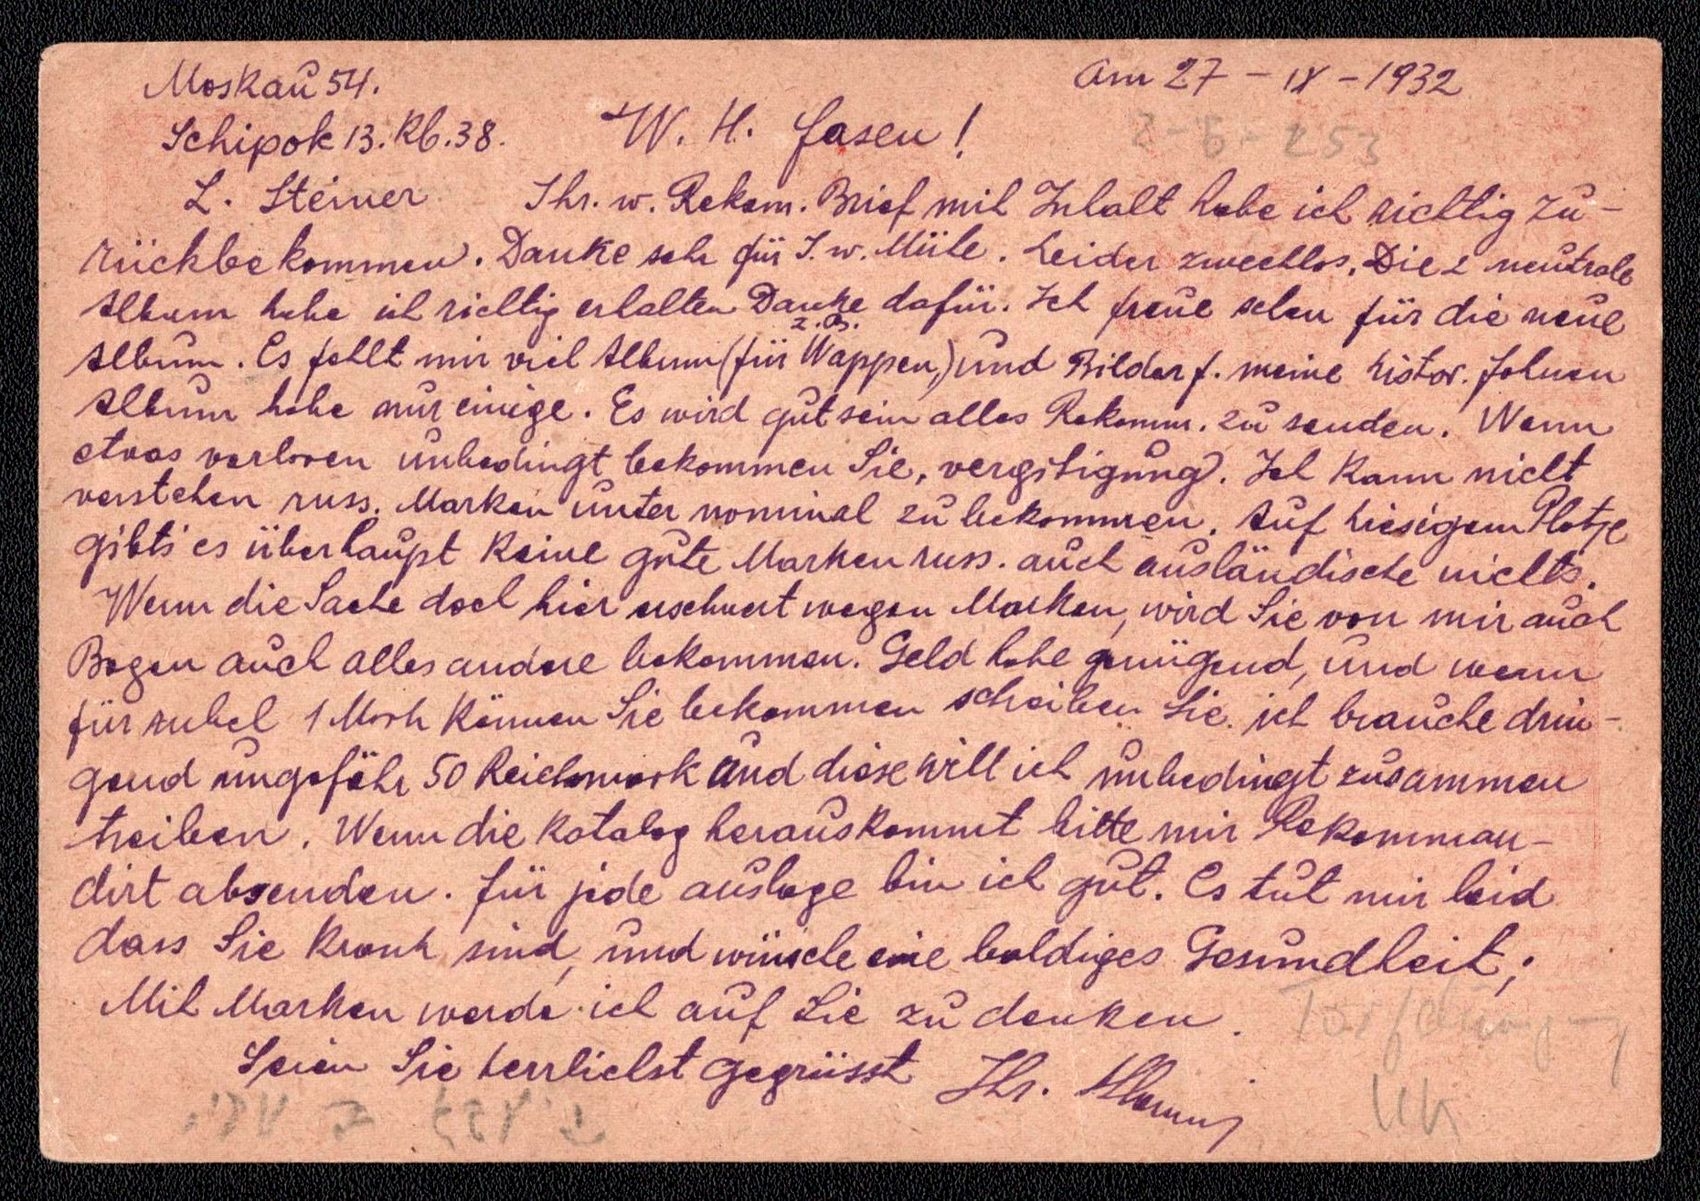 Moskau 54. Am 27 - IX - 1932
Schipok 13. Kb. 38. W. H. Fasen!
L. Steiner Ihr. w. Rekom. Brief mit Inhalt habe ich richtig zu-
rückbekommen. Danke sehr für I. w. Müle. Leider zwecklos. Die 2 neutrale
Album habe ich richtig erhalten Danke dafür. Ich freue schon für die neue
Album. Es fehlt mir viel Album (für z. B. Wappen,) und Bilder f. meine histor. Fahnen
Album habe nur einige. Es wird gut sein alles Rekomm. zu senden. Wenn
etvas verloren unbedingt bekommen Sie, vergitigung. Ich kann nicht
verstehen russ. Marken unter nominal zu bekommen. Auf hiesigem Platze
gibts es überhaupt keine gute Marken russ. auch ausländische nichts.
Wenn die Sache doch hier erschwert wegen Marken, wird Sie von mir auch
Bogen auch alles andere bekommen. Geld habe genügend, und wenn
für rubel 1 Mark können Sie bekommen schreiben Sie. ich brauche drin-
gend ungefähr 50 Reichsmark und diese will ich unbedingt zusammen
treiben. Wenn die Katalog herauskommt bitte mir Rekomman-
dirt absenden. für jede auslage bin ich gut. Es tut mir leid
dass Sie krank sind, und wünsche eine baldiges Gesundheit;
Mit Marken werde ich auf Sie zu denken.
Seien Sie herrlichst gegrüsst Ihr.